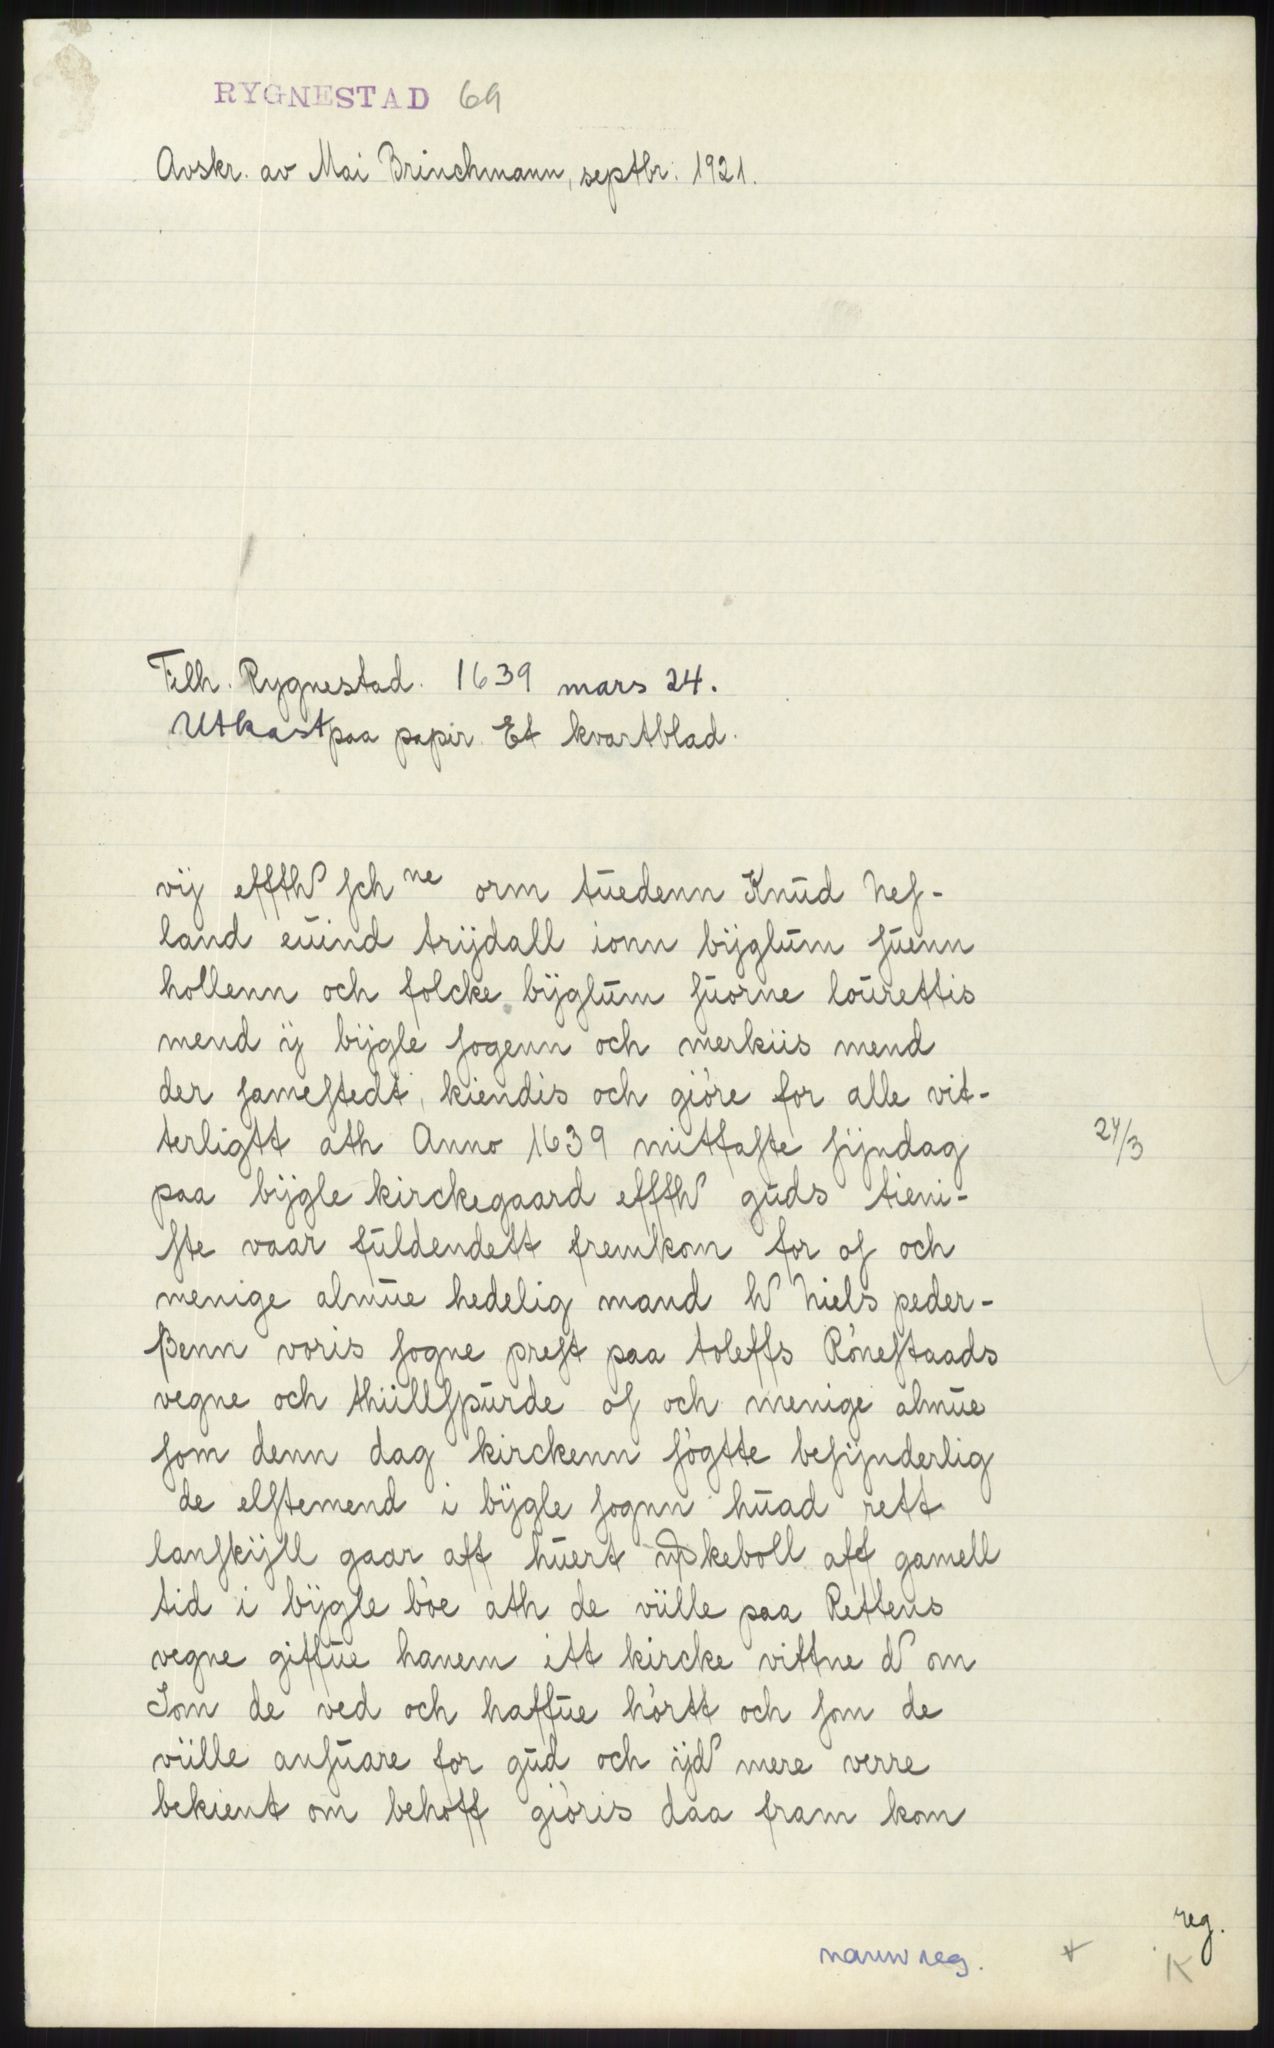 RYGNESTAD 69
Avskr. av Mai Brinchmann, septbr. 1921.
Tilh. Rygnestad. 1639 mars 24.
Utkast paa papir. Et kvartblad.
vij effth ſch ne orm tuedenn Knud Neſ-
land euind trijdall ionn bijglum ſuenn
hollenn och folcke bijglum ſuorne lourettis
mend ij bijgle ſogenn och merkiis mend
der ſameſtedt, kiendis och gióre for alle vit-
terligtt ath Anno 1639 mittfaſte ſijndag
24/3
paa bijgle kirckegaard effth guds tieni-
ſte vaar fuldendett fremkom for oſ och
menige almue hedelig mand h Niels peder-
ßenn voris ſogne preſt paa toleffs Róneſtaads
vegne och thiillſpurde oſ och menige almue
ſom denn dag kirckenn ſógtte beſijnderlig
de elſtemend i bijgle ſognn huad rett
lanſkijll gaar aff huert keboll aff gamell
tid i bijgle bóe ath de viille paa Rettens
vegne giffue hanem itt kircke vittne d om
Som de ved och haffue hórtt och ſom de
viille anſuare for gud och ijd mere verre
bekient om behoff gióris daa fram kom
reg.
navnreg.
K